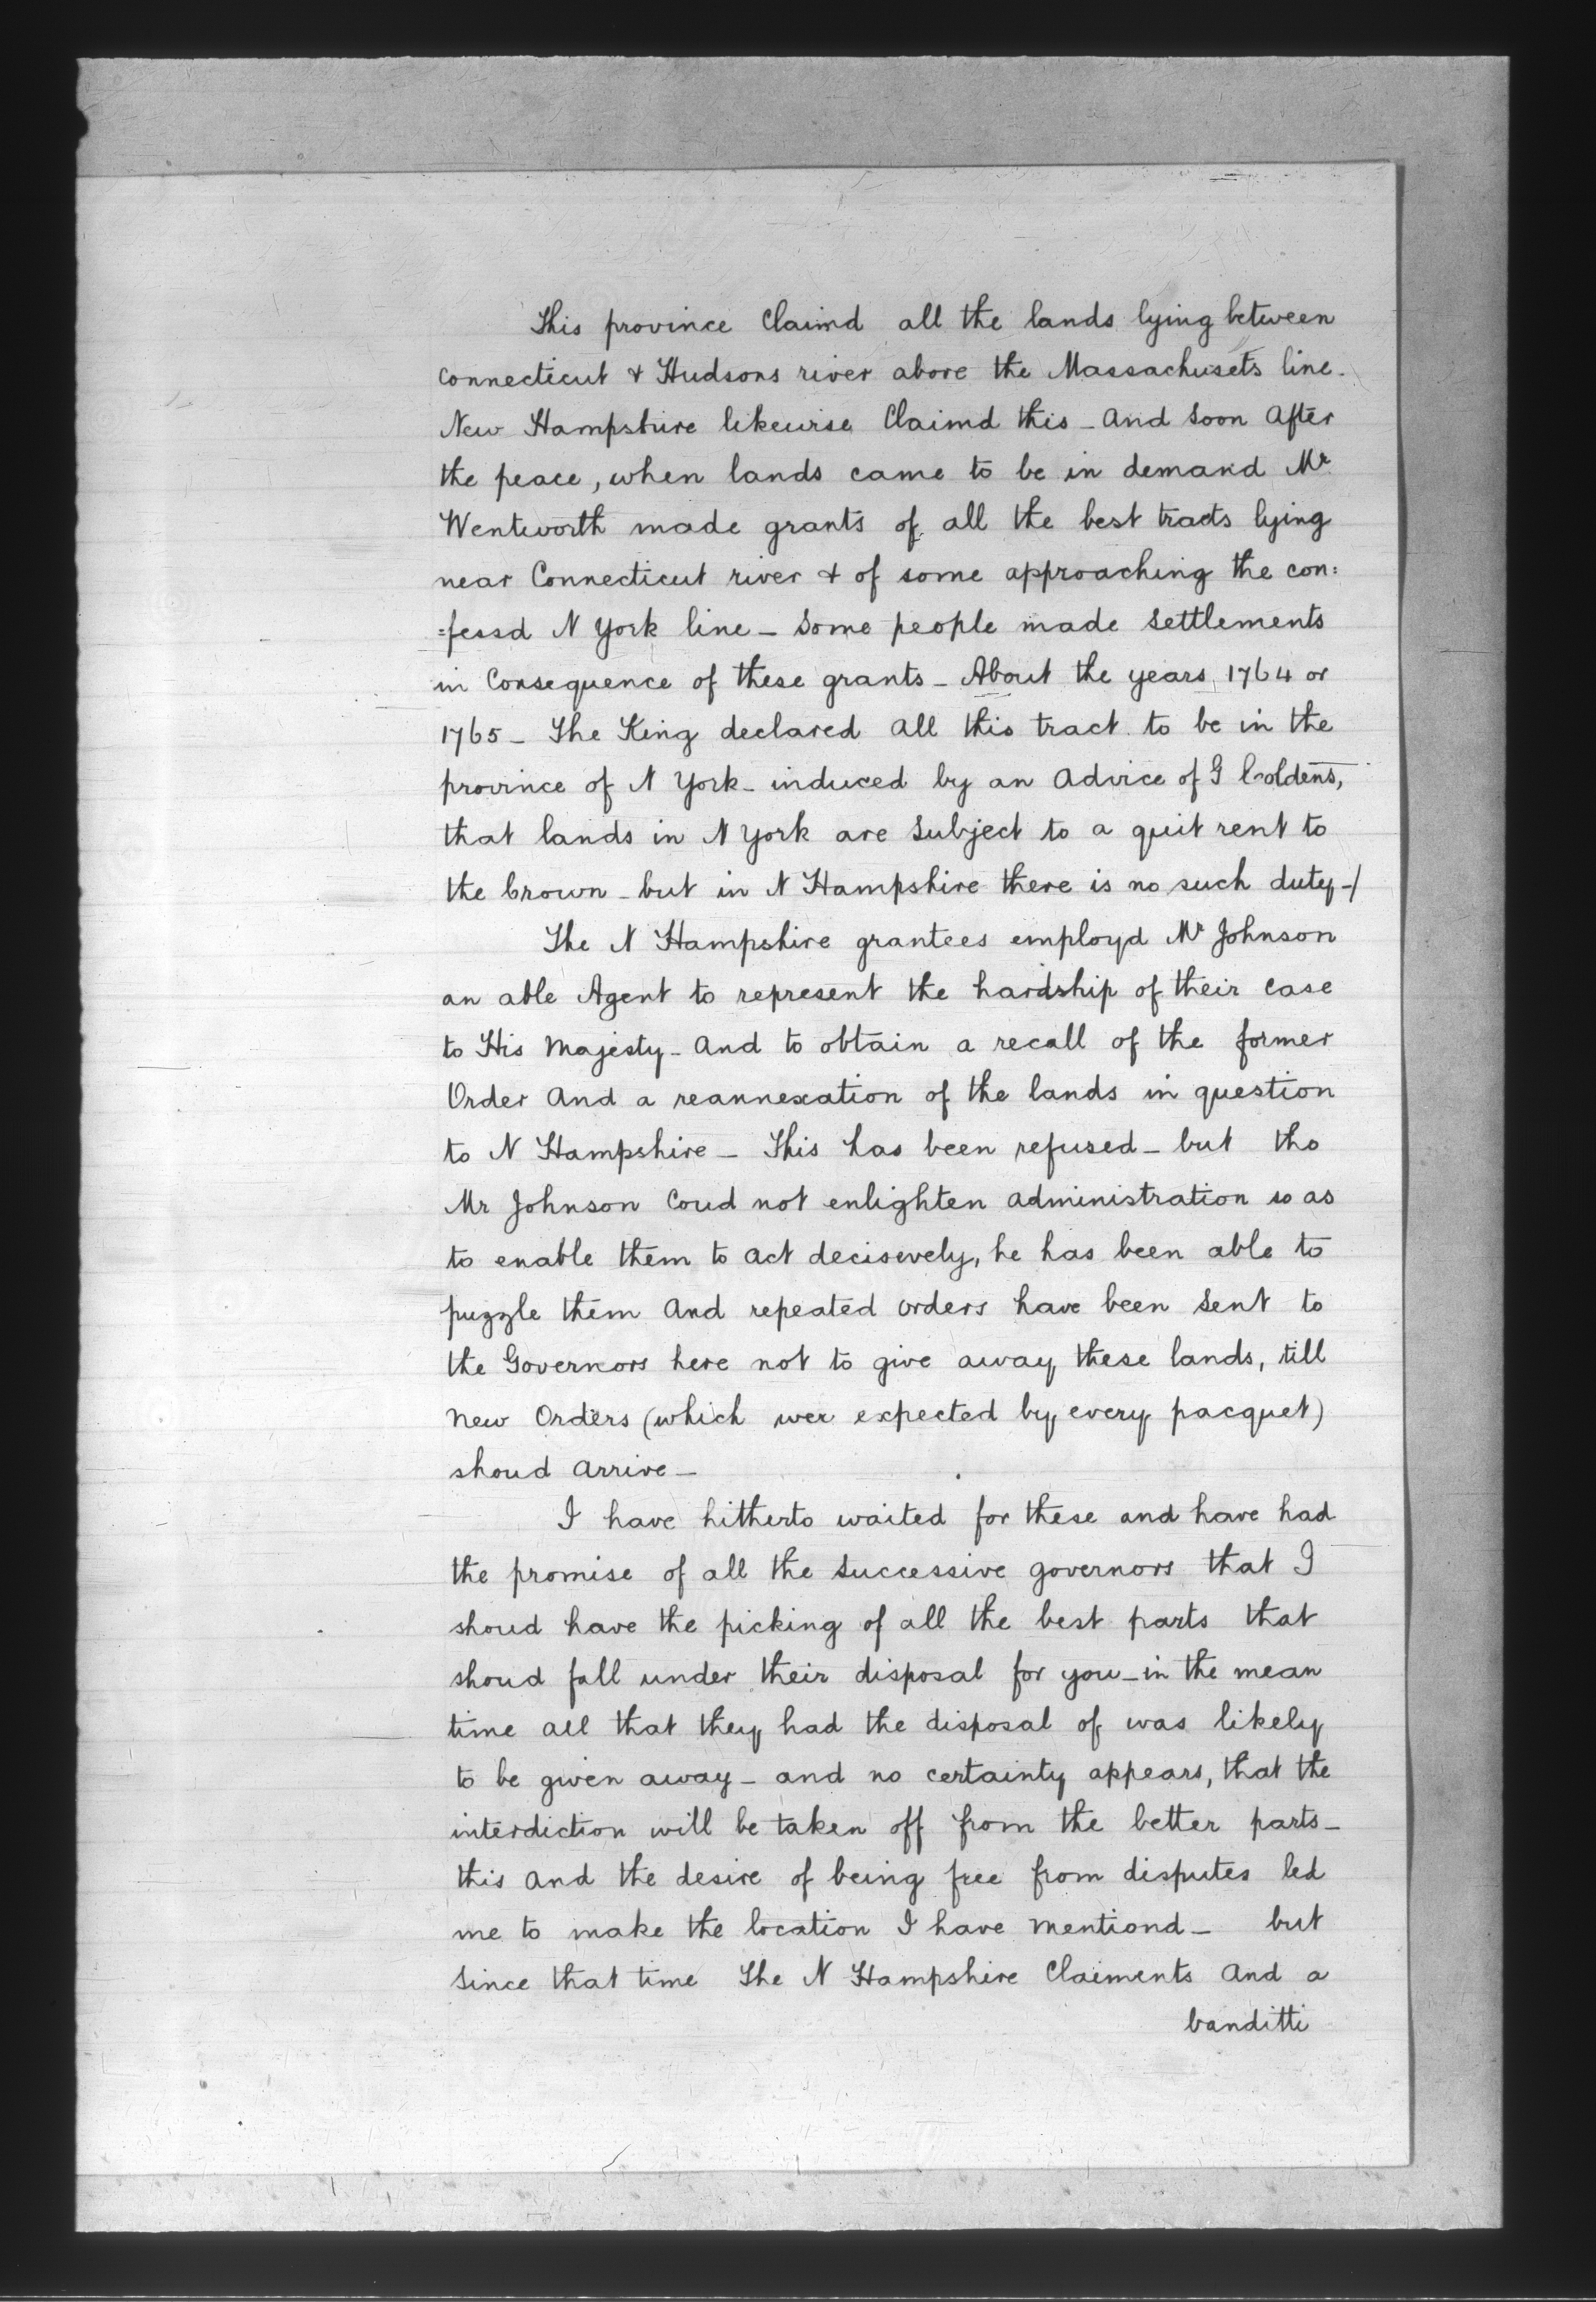 This province Claimd all the lands lying between
Connecticut & Hudsons river above the Massachusets line.
New Hampshire likewise Claimd this - And Soon After
the peace, when lands came to be in demand Mr
Wentworth made grants of all the best tracts lying
near Connecticut river & of some approaching the con:
=fessd N York line - Some people made Settlements
in Consequence of these grants - About the years 1764 or
1765 - The King declared All this tract to be in the
province of N York - induced by an Advice of G Coldens,
that lands in N York are Subject to a quit rent to
the Crown - but in N Hampshire there is no such duty -/
The N Hampshire grantees employd Mr Johnson
an able Agent to represent the hardship of their Case
to His Majesty - And to obtain a recall of the former
Order And a reannexation of the lands in question
to N Hampshire - This has been refused - but tho
Mr Johnson Coud not enlighten Administration so as
to enable them to Act decisevely, he has been able to
puzzle them And repeated orders have been Sent to
the Governors here not to give away these lands, till
New Orders (which wer expected by every pacquet)
shoud Arrive -
I have hitherto waited for these and have had
the promise of all the Successive governors that I
shoud have the picking of all the best parts that
shoud fall under their disposal for you - in the mean
time All that they had the disposal of was likely
to be given away - and no certainty appears, that the
interdiction will be taken off from the better parts -
this And the desire of being free from disputes led
me to make the location I have Mentiond - but
Since that time The N Hampshire Claiments And a
banditti